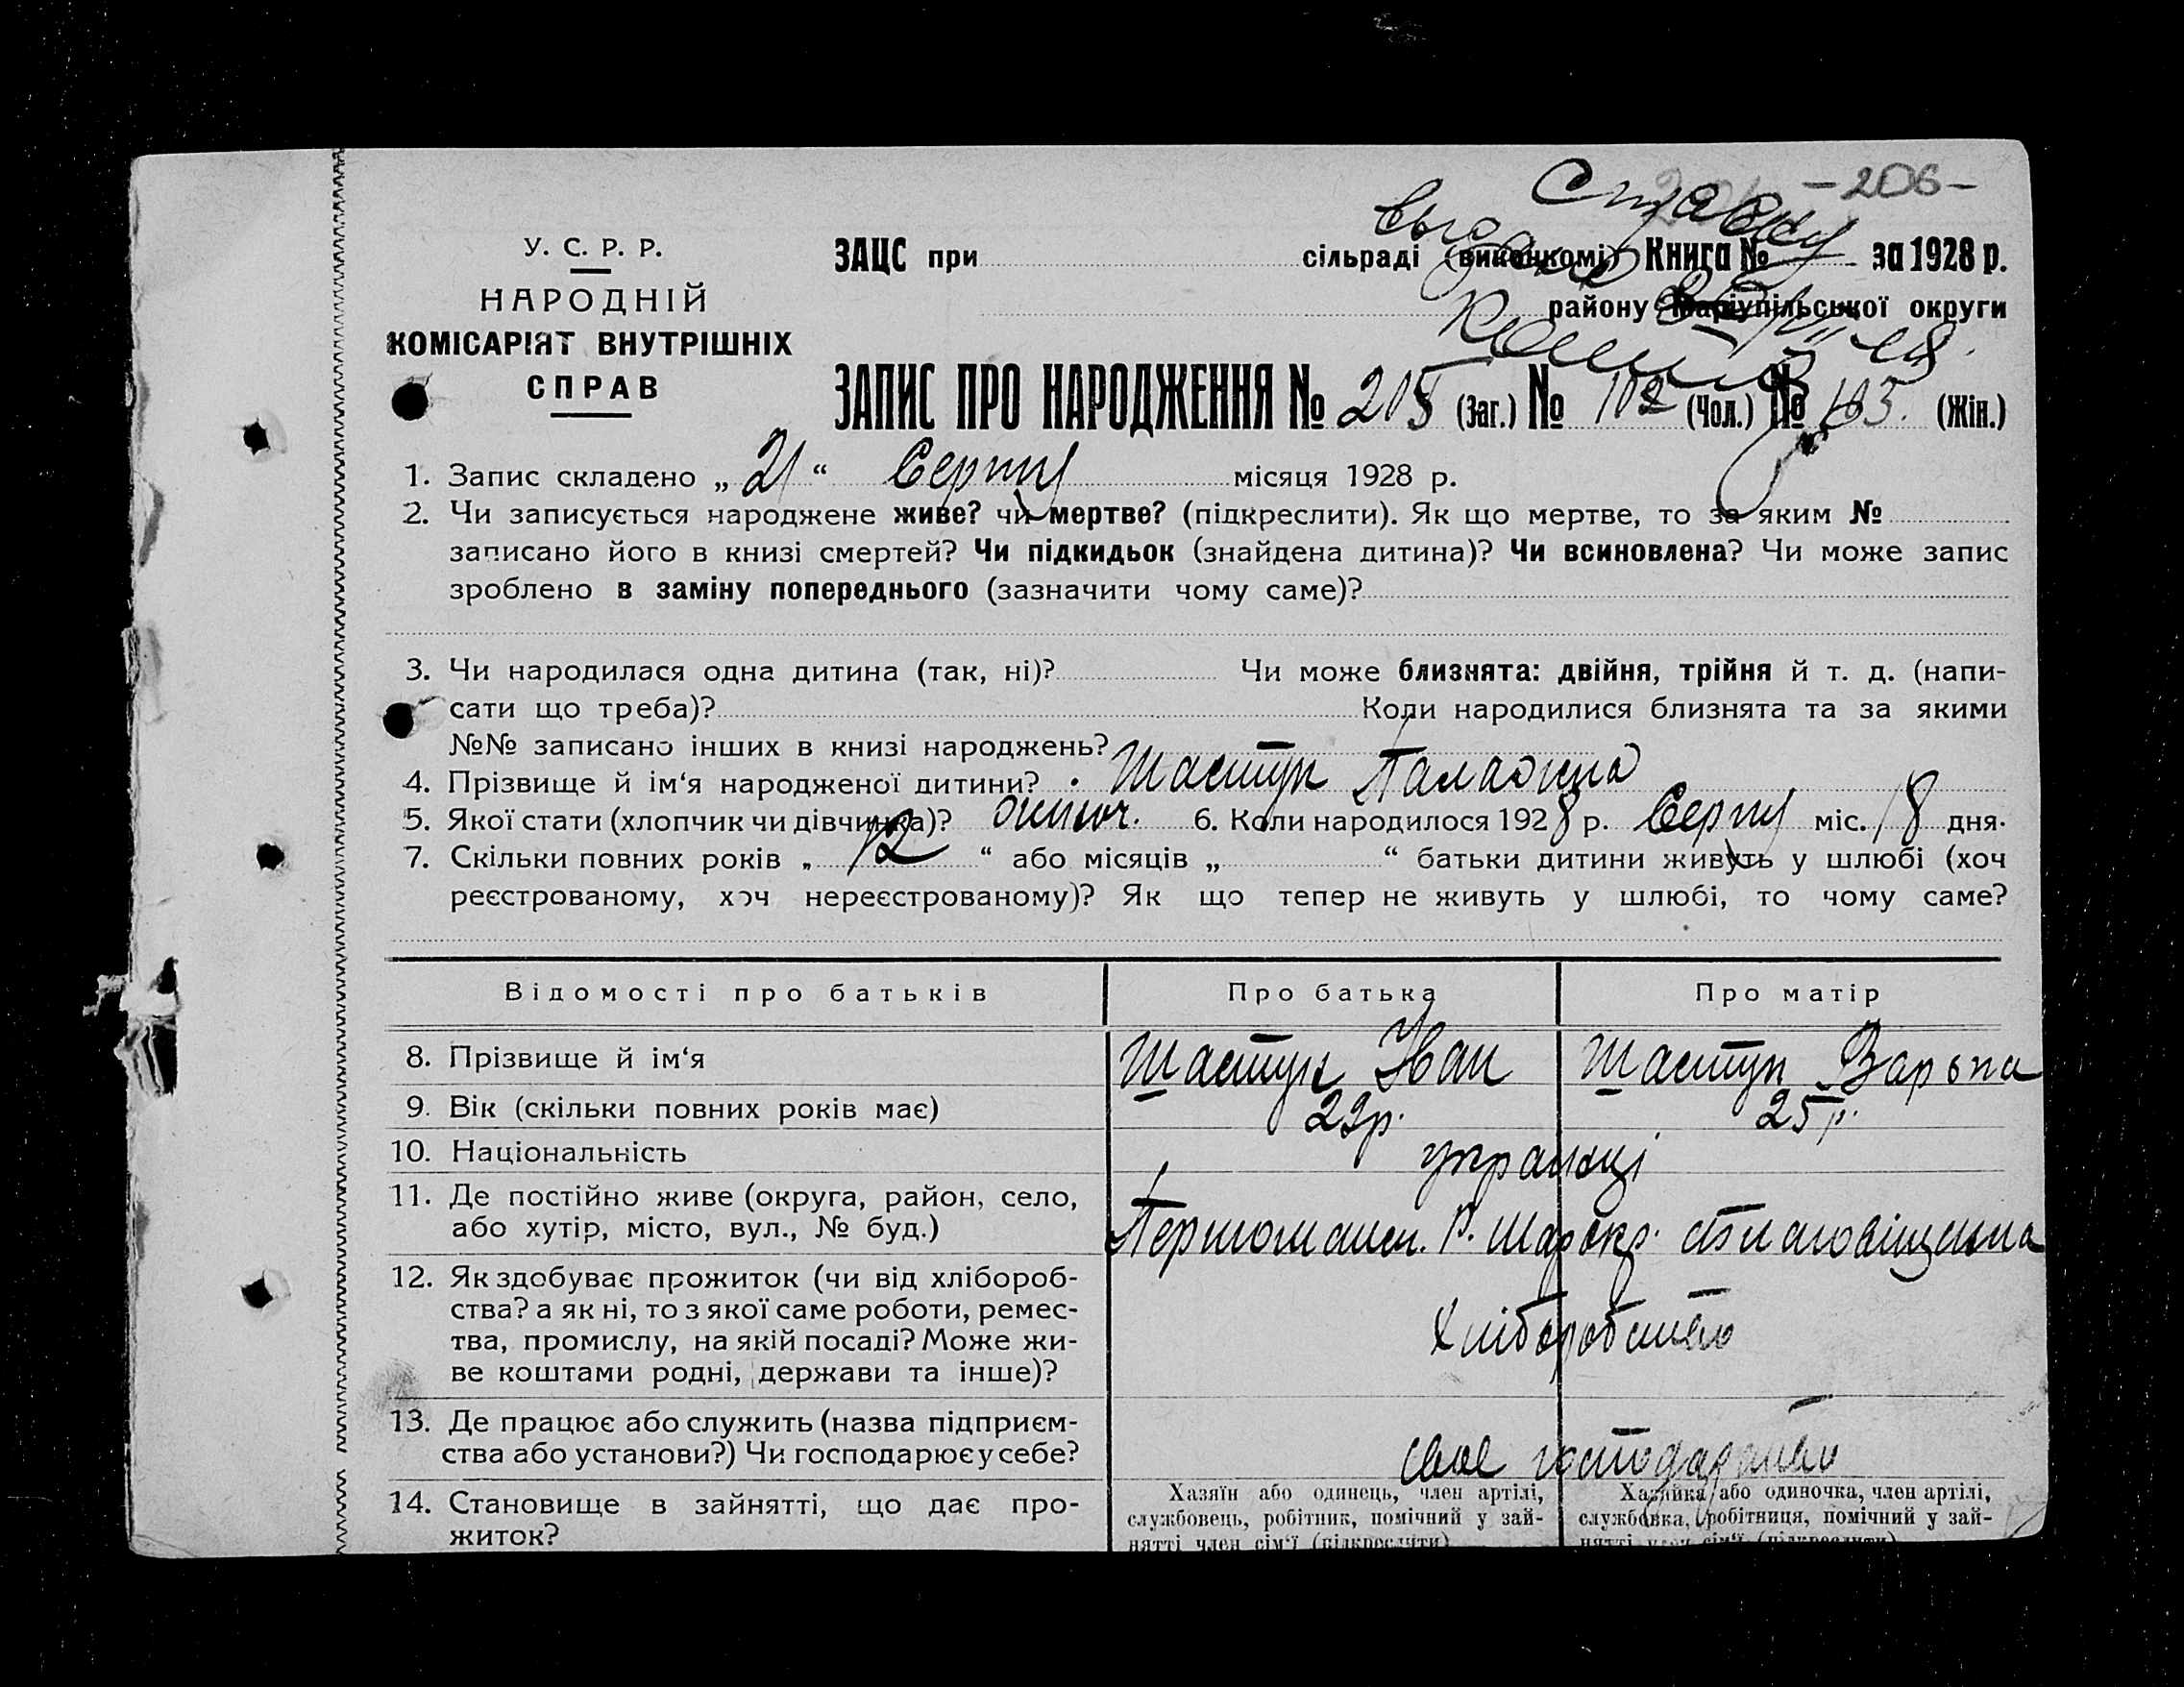 -206-
Справку
выдано
У. С. Р. Р.
ЗАЦС при сільраді (виконкомі) Книга № за 1928 р.
НАРОДНІЙ
району Маріупільської округи
КОМІСАРІЯТ ВНУТРІШНІХ
СПРАВ
ЗАПИС ПРО НАРОДЖЕННЯ № 205 (Заг.) № 102 (Чол.) № 103. (Жін.)
1. Запис складено „ 21 “ Серпня місяця 1928 р.
2. Чи записується народжене живе? чи мертве? (підкреслити). Як що мертве, то за яким №
записано його в книзі смертей? Чи підкидьок (знайдена дитина)? Чи всиновлена? Чи може запис
зроблено в заміну попереднього (зазначити чому саме)?
3. Чи народилася одна дитина (так, ні)? Чи може близнята: двійня, трійня й т. д. (напи-
сати що треба)? Коли народилися близнята та за якими
№№ записано інших в книзі народжень?
4. Прізвище й ім‘я народженої дитини? Шастун
5. Якої стати (хлопчик чи дівчинка)? 6. Коли народилося 1928 р. Серпня міс. 18 дня.
7. Скільки повних років „ 12 “ або місяців „ “ батьки дитини живуть у шлюбі (хоч
реєстрованому, хоч нереєстрованому)? Як що тепер не живуть у шлюбі, то чому саме?
Відомості про батьків Про батька Про матір
8. Прізвище й ім‘я Шастун Іван Шастун Варька
9. Вік (скільки повних років має) 29р. 25 р.
10. Національність українці
11. Де постійно живе (округа, район, село,
або хутір, місто, вул., № буд.) Першомайськ. Р. Мар окр. Благовіщенка
12. Як здобуває прожиток (чи від хлібороб-
ства? а як ні, то з якої саме роботи, ремес-
тва, промислу, на якій посаді? Може жи-
ве коштами родні, держави та інше)? Хліборобство
13. Де працює або служить (назва підприєм-
ства або установи?) Чи господарює у себе? своє господарство
14. Становище в зайнятті, що дає про-
житок?
Хазяїн або одинець, член артілі,
службовець, робітник, помічний у зай-
нятті член сім‘ї (підкреслити)
Хазяйка або одиночка, член артілі,
службовка, робітниця, помічний у зай-
нятті член сім‘ї (підкреслити)